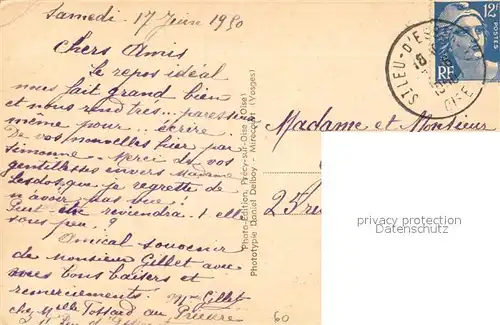 Samedi 17 Juin 1950
Chers Amis
Le repos idéal
nous fait grand bien
et nous rend très.. paresseux
même pour... écrire.
De vos nouvelles hier par
Simonne. Merci de vos
gentillesses envers Madame
que je regrette de
n'avoir pas vue!
Peut-être reviendra-t-elle
sous peu?
Amical souvenir
de Monsieur Gillet avec
mes bons baisers et
remerciements. Mme Gillet
chez Melle Tossard au Prieuré
Photo-Edition, Précy-sur-Oise (Oise)
Phototypie Daniel Delboy - Mirecourt (Vosges)
12F
POSTES
RF
ST LEU-D'ES
18
OISE
Madame et Monsieur
2
60
privacy protected
Datenschutz